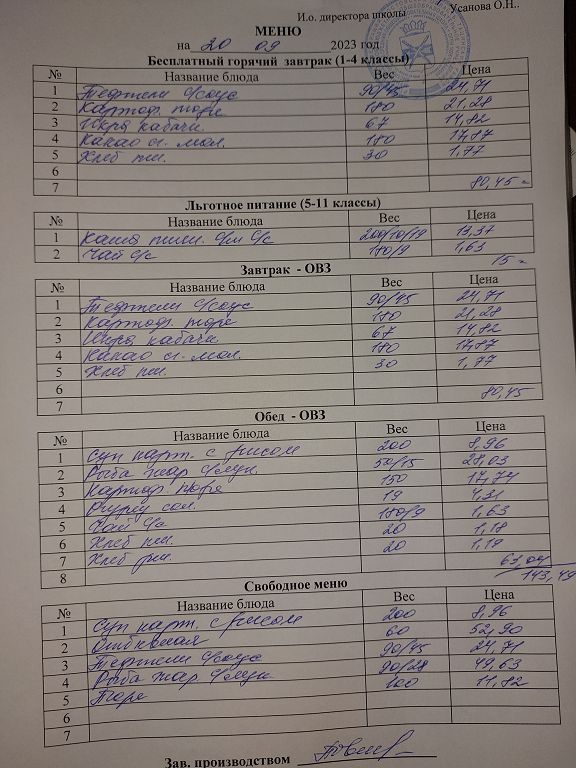 И.о. директора школы Усанова О.Н..
МЕНЮ
на 20 09 2023 год
Бесплатный горячий завтрак (1-4 классы)
№ Название блюда Вес Цена
1 Тефтели с/соус 90/45 24,71
2 Картоф. пюре 180 21,28
3 Икра кабачк. 67 14,82
4 Какао сг. мол. 180 17,87
5 Хлеб пш. 30 1,77
6
7 80,45
Льготное питание (5-11 классы)
№ Название блюда Вес Цена
1 Каша пшен. с/м с/с 200/10/19 13,37
2 Чай с/с 180/9 1,63
15
Завтрак - ОВЗ
№ Название блюда Вес Цена
1 Тефтели с/соус 90/45 24,71
2 Картоф. пюре 180 21,28
3 Икра кабачк. 67 14,82
4 Какао сг. мол. 180 17,87
5 Хлеб пш. 30 1,77
6
7 80,45
Обед - ОВЗ
№ Название блюда Вес Цена
1 Суп карт. с рисом 200 8,96
2 Рыба жар 50/15 28,03
3 Картоф. пюре 150 17,74
4 Огурец сол. 19 4,31
5 Чай с/с 180/9 1,63
6 Хлеб пш. 20 1,18
7 Хлеб рж. 20 1,19
8 63,04
143,49
Свободное меню
№ Название блюда Вес Цена
1 Суп карт. с рисом 200 8,96
2 Отбивная 60 52,90
3 Тефтели с/соус 90/45 24,71
4 Рыба жар 90/28 49,63
5 Пюре 100 11,82
6
7
Зав. производством